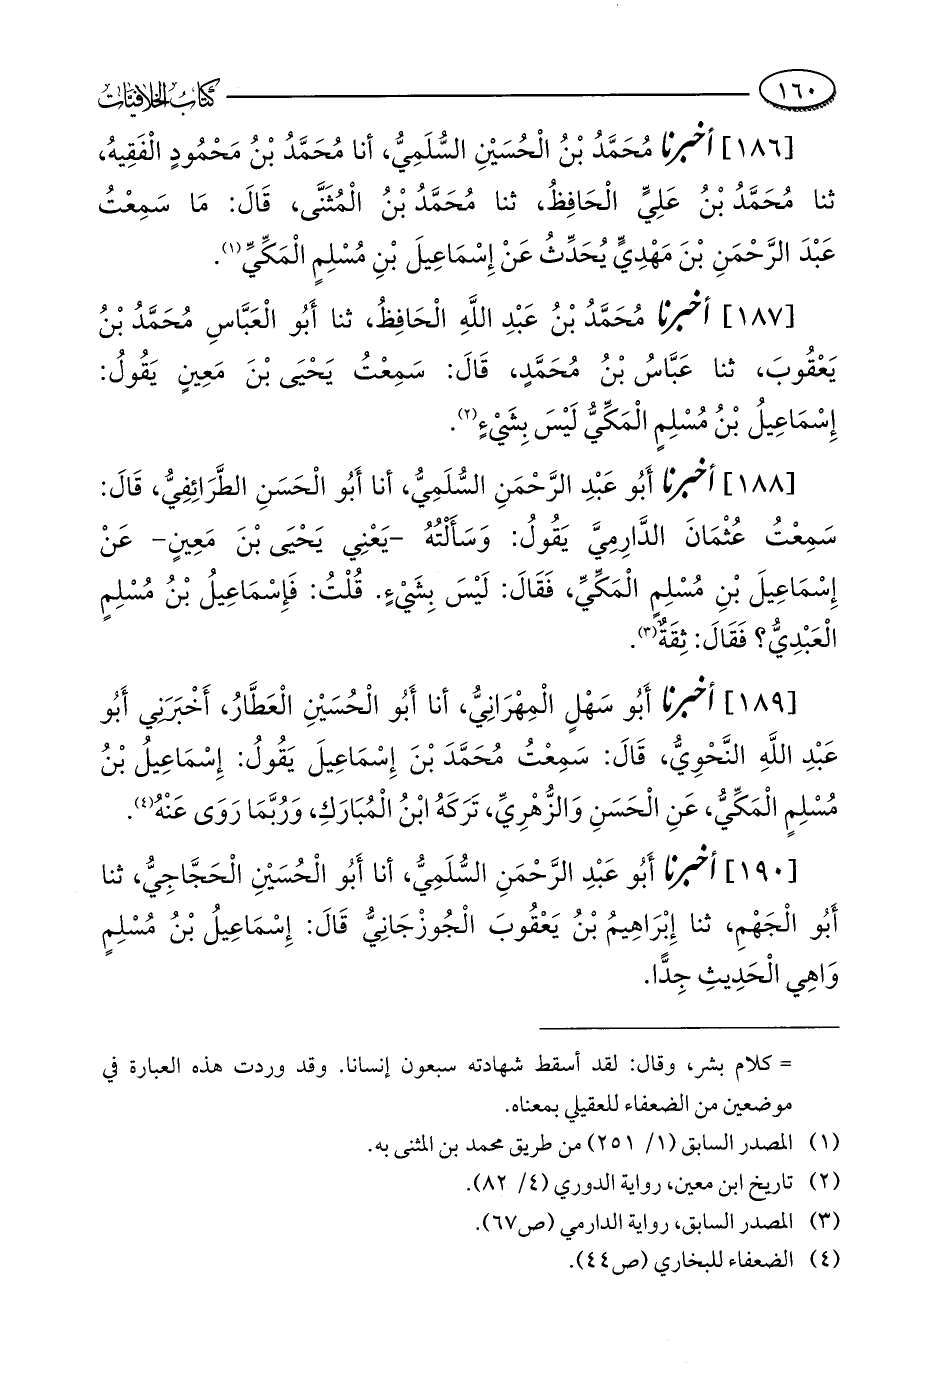 ١٦٠ كتاب الخلافيات
[١٨٦] أخبرنا مُحَمَّدُ بْنُ الْحُسَيْنِ السُّلَمِيُّ، أنا مُحَمَّدُ بْنُ مَحْمُودٍ الْفَقِيهُ،
ثنا مُحَمَّدُ بْنُ عَلِيٍّ الْحَافِظُ، ثنا مُحَمَّدُ بْنُ الْمُثَنَّى، قَالَ: مَا سَمِعْتُ
عَبْدَ الرَّحْمَنِ بْنَ مَهْدِيٍّ يُحَدِّثُ عَنْ إِسْمَاعِيلَ بْنِ مُسْلِمٍ الْمَكِّيِّ(١).
[١٨٧] أخبرنا مُحَمَّدُ بْنُ عَبْدِ اللَّهِ الْحَافِظُ، ثنا أَبُو الْعَبَّاسِ مُحَمَّدُ بْنُ
يَعْقُوبَ، ثنا عَبَّاسُ بْنُ مُحَمَّدٍ، قَالَ: سَمِعْتُ يَحْيَى بْنَ مَعِينٍ يَقُولُ:
إِسْمَاعِيلُ بْنُ مُسْلِمٍ الْمَكِّيُّ لَيْسَ بِشَيْءٍ(٢).
[١٨٨] أخبرنا أَبُو عَبْدِ الرَّحْمَنِ السُّلَمِيُّ، أنا أَبُو الْحَسَنِ الطَّرَائِفِيُّ، قَالَ:
سَمِعْتُ عُثْمَانَ الدَّارِمِيَّ يَقُولُ: وَسَأَلْتُهُ -يَعْنِي يَحْيَى بْنَ مَعِينٍ- عَنْ
إِسْمَاعِيلَ بْنِ مُسْلِمٍ الْمَكِّيِّ، فَقَالَ: لَيْسَ بِشَيْءٍ. قُلْتُ: فَإِسْمَاعِيلُ بْنُ مُسْلِمٍ
الْعَبْدِيُّ؟ فَقَالَ: ثِقَةٌ(٣).
[١٨٩] أخبرنا أَبُو سَهْلٍ الْمِهْرَانِيُّ، أنا أَبُو الْحُسَيْنِ الْعَطَّارُ، أَخْبَرَنِي أَبُو
عَبْدِ اللَّهِ النَّحْوِيُّ، قَالَ: سَمِعْتُ مُحَمَّدَ بْنَ إِسْمَاعِيلَ يَقُولُ: إِسْمَاعِيلُ بْنُ
مُسْلِمٍ الْمَكِّيُّ، عَنِ الْحَسَنِ وَالزُّهْرِيِّ، تَرَكَهُ ابْنُ الْمُبَارَكِ، وَرُبَّمَا رَوَى عَنْهُ(٤).
[١٩٠] أخبرنا أَبُو عَبْدِ الرَّحْمَنِ السُّلَمِيُّ، أنا أَبُو الْحُسَيْنِ الْحَجَّاجِيُّ، ثنا
أَبُو الْجَهْمِ، ثنا إِبْرَاهِيمُ بْنُ يَعْقُوبَ الْجُوزْجَانِيُّ قَالَ: إِسْمَاعِيلُ بْنُ مُسْلِمٍ
وَاهِي الْحَدِيثِ جِدًّا.
= كلام بشر، وقال: لقد أسقط شهادته سبعون إنسانا. وقد وردت هذه العبارة في
موضعين من الضعفاء للعقيلي بمعناه.
(١) المصدر السابق (١/ ٢٥١) من طريق محمد بن المثنى به.
(٢) تاريخ ابن معين، رواية الدوري (٤/ ٨٢).
(٣) المصدر السابق، رواية الدارمي (ص٦٧).
(٤) الضعفاء للبخاري (ص٤٤).